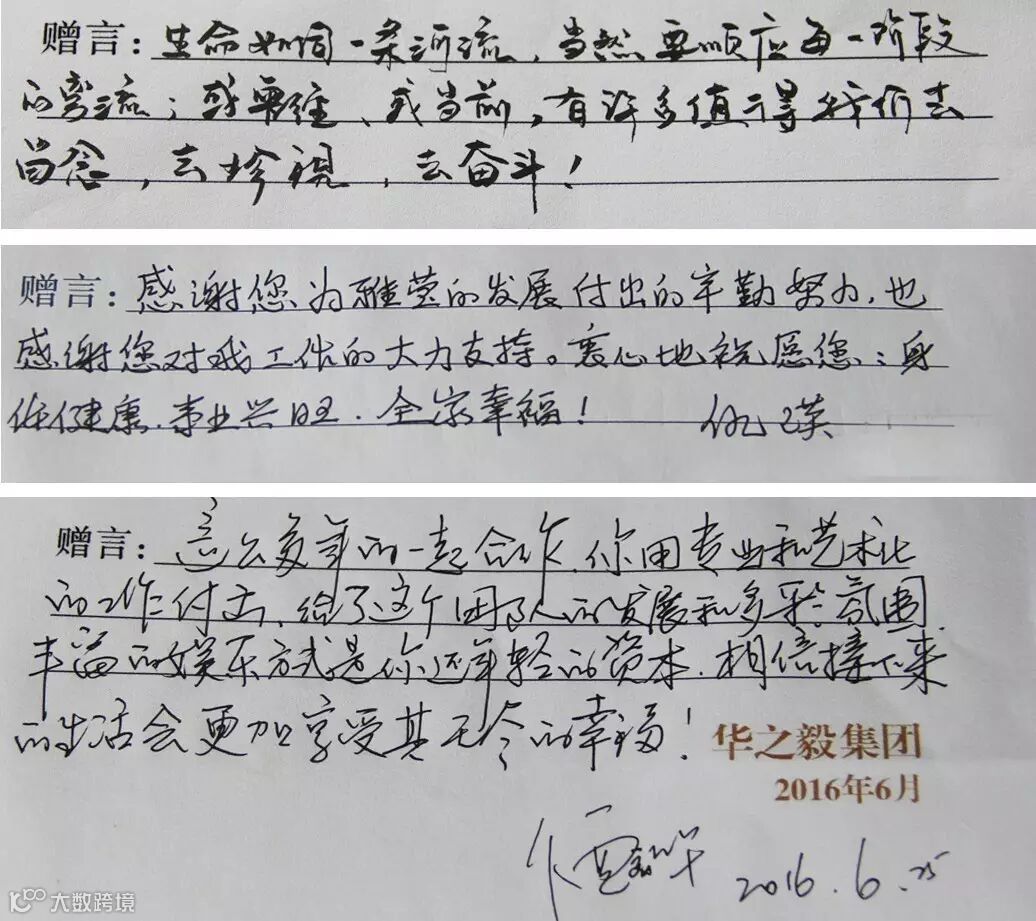 赠言：生命如同一条河流，当然要顺应每一阶段
的弯流；或要继、或当前，有许多值得我们去
留念，去珍視，去奋斗！
赠言：感谢您为雅莹的发展付出的辛勤努力，也
感谢您对我工作的大力支持。衷心地祝愿您：身
体健康．事业兴旺．全家幸福！ 仇瑛
赠言：这么多年的一起合作，你用专业和艺术化
的工作付出，给了这个团队的发展和多彩氛围，
丰富的娱乐方式是你还年轻的资本，相信接下来
的生活会更加享受其天伦的幸福！
华之毅集团
2016年6月
华 2016.6.25
大数跨境